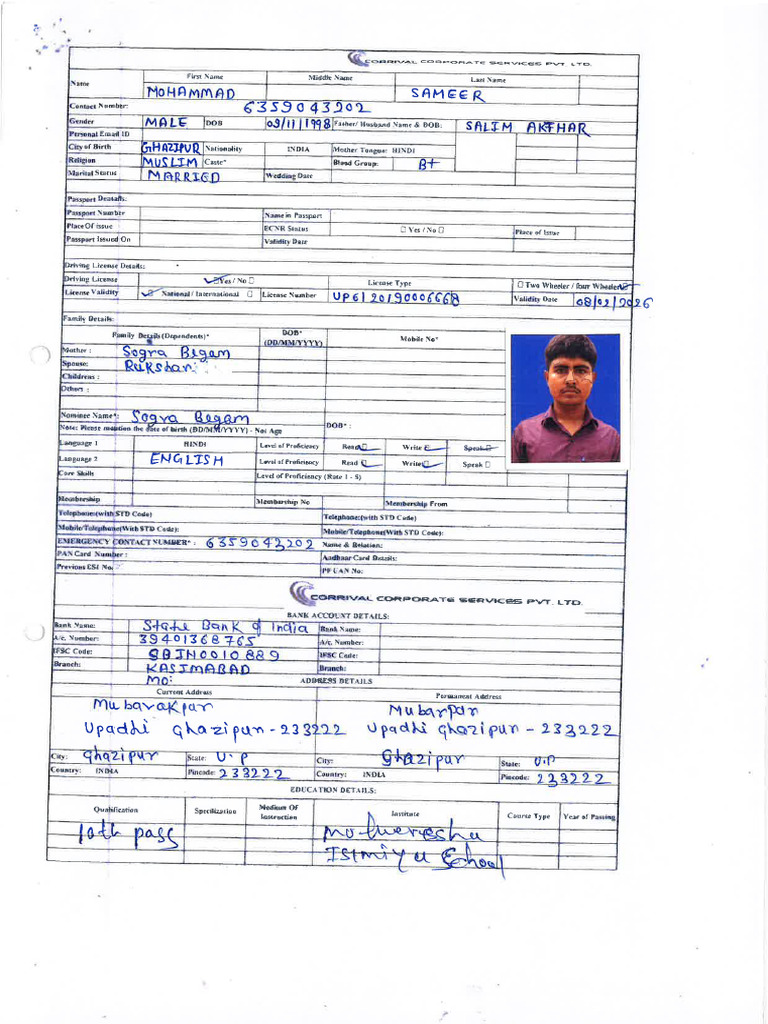 CORRIVAL CORPORATE SERVICES PVT. LTD.
First Name Middle Name Last Name
Name MOHAMMAD SAMEER
Contact Number: 6359043202
Gender MALE DOB 09/11/1998 Father/ Husband Name & DOB: SALIM AKTHAR
Personal Email ID
City of Birth GHAZIPUR Nationality INDIA Mother Tongue: HINDI
Religion MUSLIM Caste* Blood Group: B+
Marital Status MARRIED Wedding Date
Passport Deatails:
Passport Number Name in Passport
Place Of issue ECNR Status ☐ Yes / No ☐ Place of Issue
Passport Issued On Validity Date
Driving License Details:
Driving License ☑ Yes / No ☐ License Type ☐ Two Wheeler / four Wheeler ☑
License Validity ☑ National / International ☐ License Number UP61 20190006668 Validity Date 08/02/2026
Family Details:
Family Details (Dependents)* DOB* (DD/MM/YYYY) Mobile No*
Mother : Sogra Begam
Spouse: Rukshar
Childrens :
Others :
Nominee Name*: Sogra Begam DOB* :
Note: Please mention the date of birth (DD/MM/YYYY) - Not Age
Language 1 HINDI Level of Proficiency Read ☑ Write ☑ Speak ☑
Language 2 ENGLISH Level of Proficiency Read ☑ Write ☑ Speak ☐
Core Skills Level of Proficiency (Rate 1 - 5)
Membership Membership No Membership From
Telephone:(with STD Code) Telephone:(with STD Code)
Mobile/Telephone(With STD Code): Mobile/Telephone(With STD Code):
EMERGENCY CONTACT NUMBER* : 6359043202 Name & Relation:
PAN Card Number : Aadhaar Card Details:
Previous ESI No. PF UAN No:
CORRIVAL CORPORATE SERVICES PVT. LTD.
BANK ACCOUNT DETAILS:
Bank Name: State Bank of India Bank Name:
A/c. Number: 39401368765 A/c. Number:
IFSC Code: SBIN0010889 IFSC Code:
Branch: KASIMABAD Branch:
MO: ADDRESS DETAILS
Current Address Permanent Address
Mubarakpur Mubarpur
Upadhi ghazipur - 233222 Upadhi ghazipur - 233222
City: ghazipur State: U.P City: Ghazipur State: U.P
Country: INDIA Pincode: 233222 Country: INDIA Pincode: 233222
EDUCATION DETAILS:
Qualification Specilization Medium Of Instruction Institute Course Type Year of Passing
10th pass
School